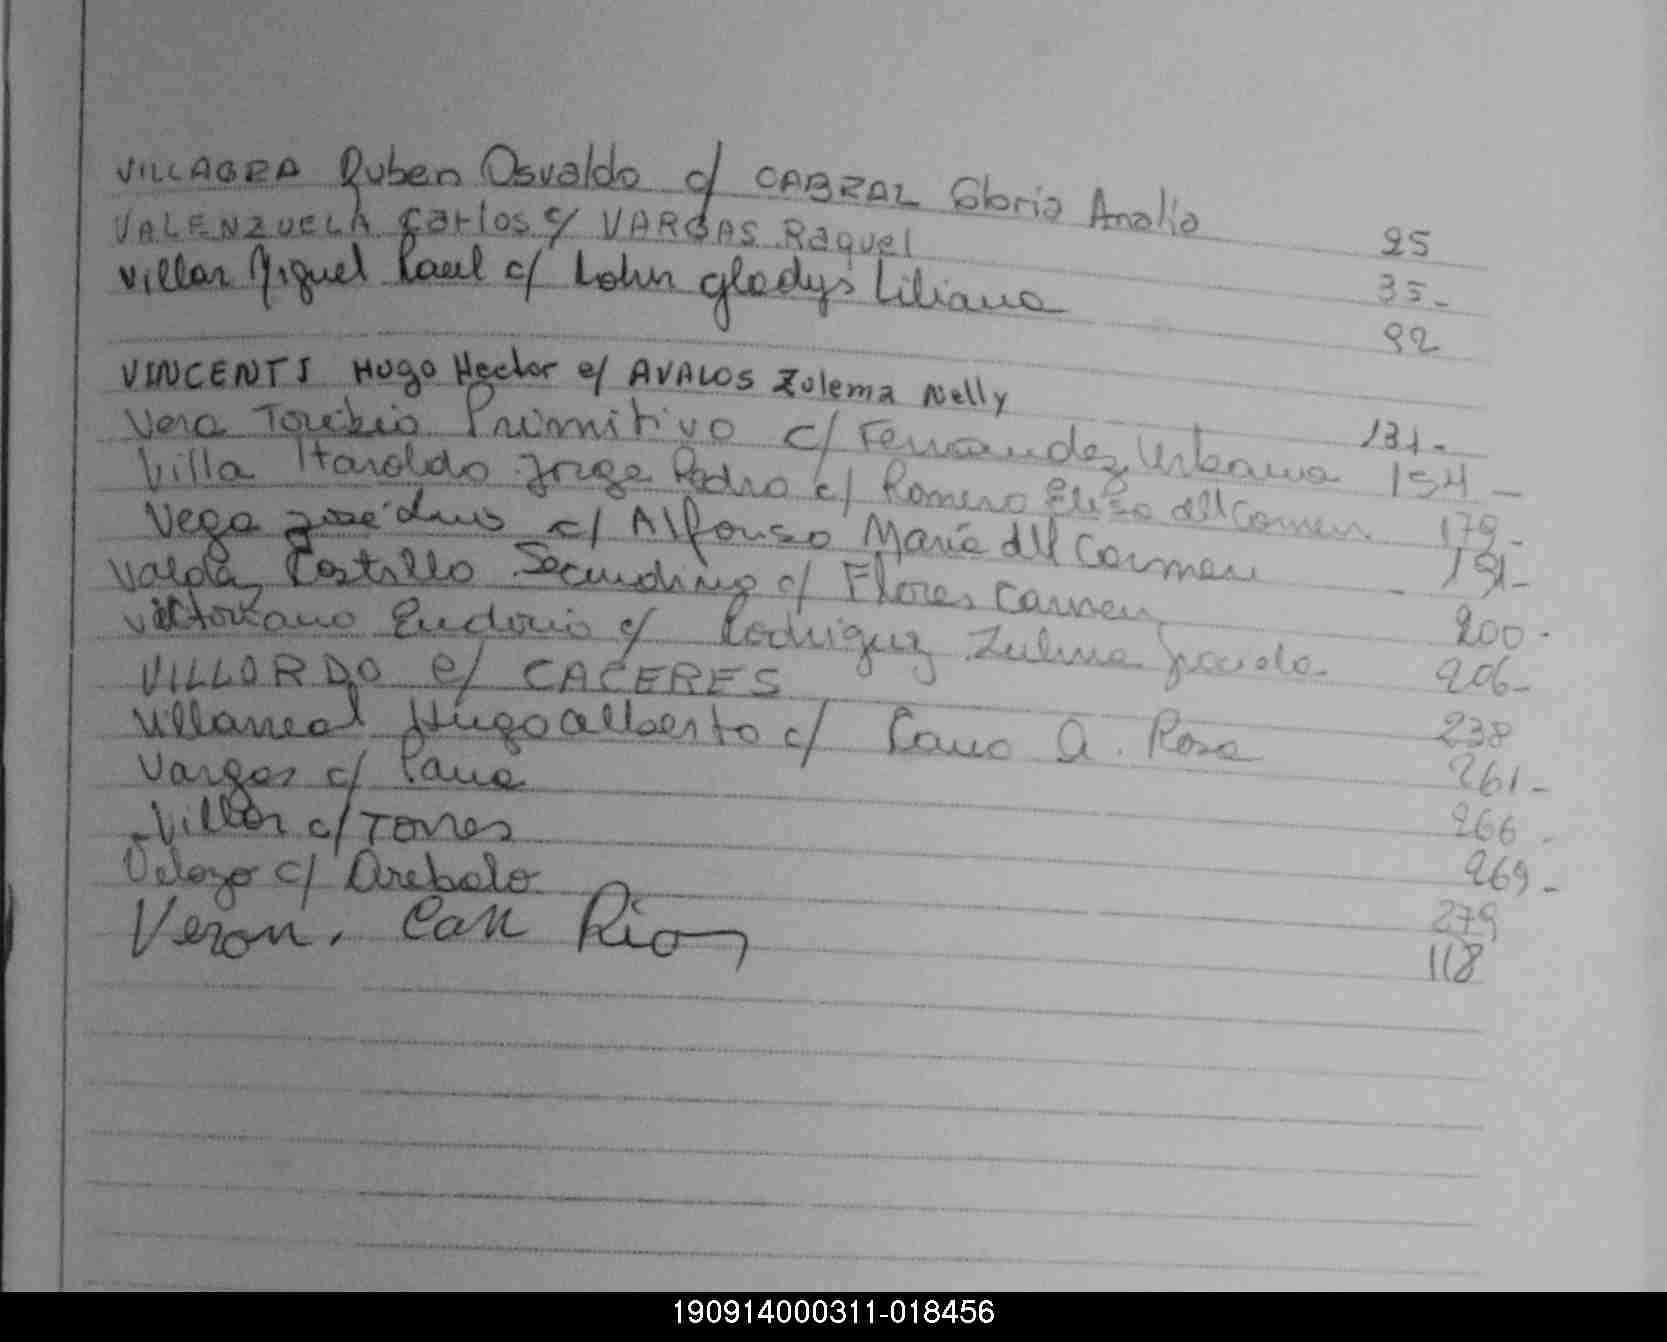 VILLAGRA Ruben Osvaldo c/ CABRAL Gloria Analia 25
VALENZUELA Carlos c/ VARGAS Raquel 35-
Villar Miguel Raul c/ Lohn gladys Liliana 92
VINCENTI Hugo Hector c/ AVALOS Zulema Nelly 131-
Vera Toribio Primitivo c/ Fernandez Urbana 154-
Villa Haroldo Jorge Pedro c/ Romero Elisa del Carmen 179-
Vega José Luis c/ Alfonso María del Carmen 191-
Valda Castillo Secundino c/ Flores Carmen 200-
Victoriano c/ Rodriguez Zulma 206-
VILLORDO c/ CACERES 238
Villarreal Hugo alberto c/ Cano A. Rosa 261-
Vargas c/ 266-
Villar c/ Torres 269-
Velozo c/ Arebalo 279
Veron. Con Rios 118
190914000311-018456